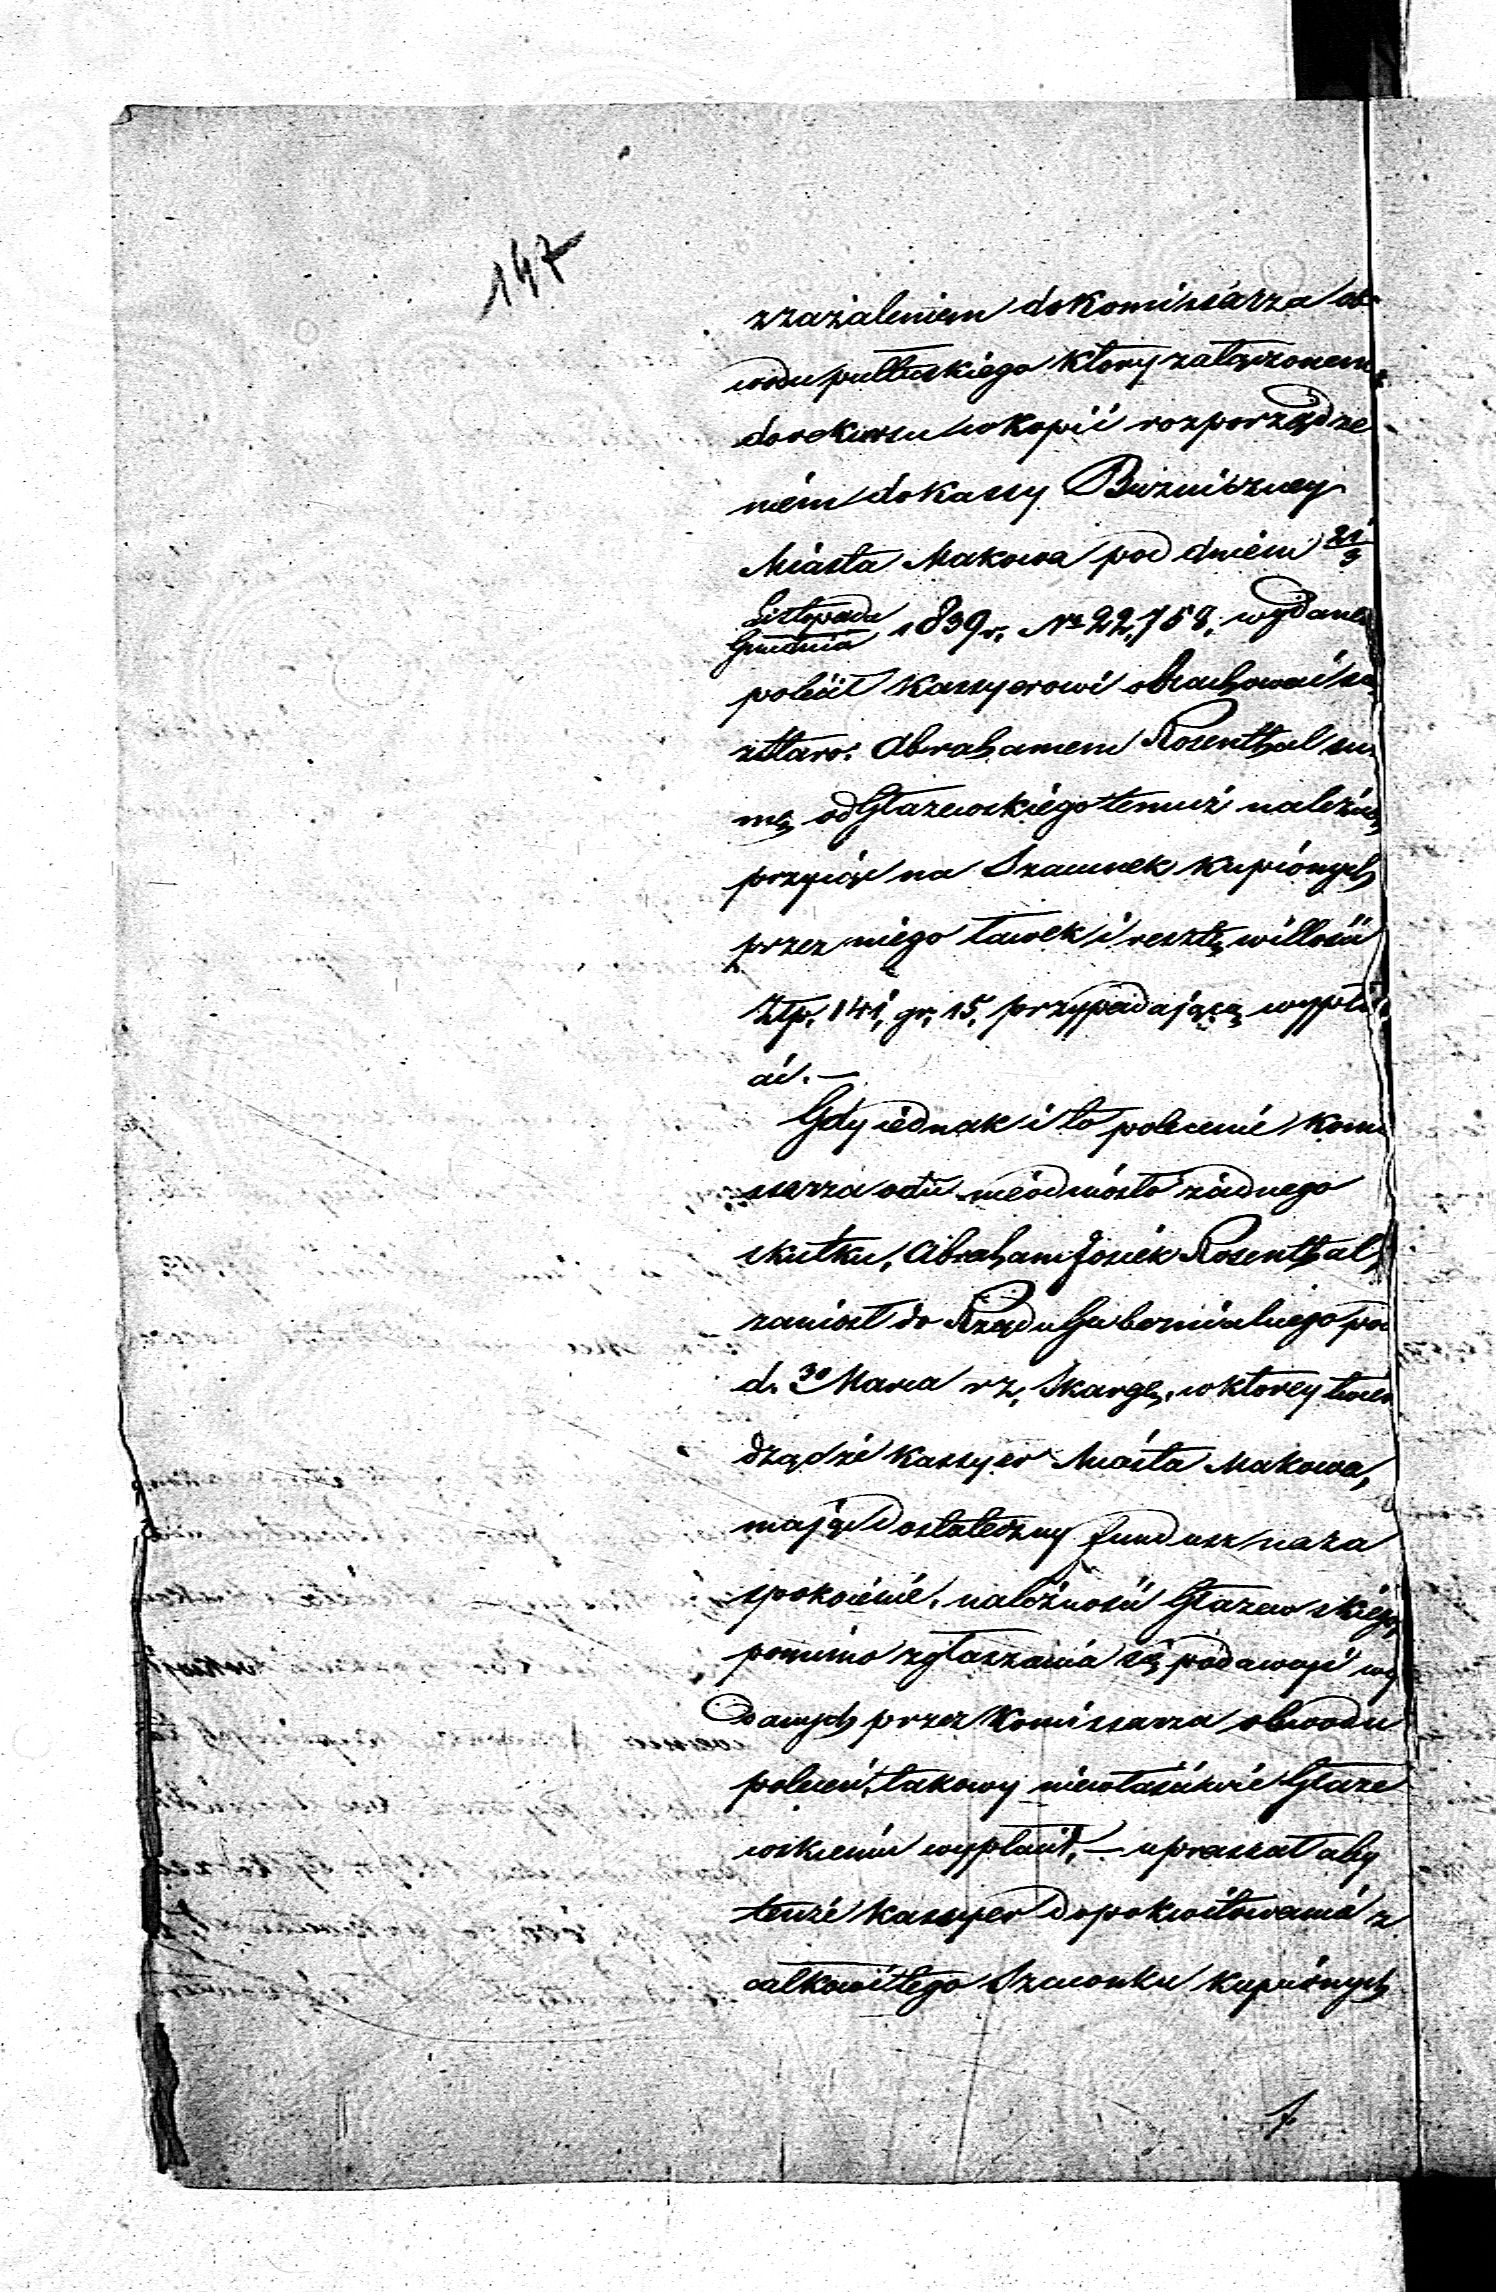 147
z zażaleniem do Komissarza ob
wodu pułtuskiego który załączonem
do rekursu w Kopii rozporządze
niém do Kassy Bużniczney
Miasta Makowa pod dniem 21/3
Listopada/Grudnia 1839 r. Nº 22,758. wydanem
polécił Kassyerowi obrachować się
z staro: Abrahamem Rosenthal sum
mę od Głazewskiego temuż należną
przyjąć na Szacunek kupionych
przez niego ławek i resztę w illości
Złp. 141, gr. 15, przypadającą wypła
cić. —
Gdy iednak i to polecenie Komi
ssarza odu nieodniosło żadnego
skutku, Abraham Josiek Rosenthal
zaniosł do Rządu Gubernialnego pod
d. 30 Marca r z, Skargę, w ktorey twier
dząc że Kassyer Miasta Makowa,
mając dostateczny fundusz na za
spokoienie, należności Głazewskiego,
pomimo zgłaszania się podawcy i wy
danych przez Komissarza obwodu
poleceń, takowy niewłaściwie Głaze
wskiemu wypłacił, — upraszał aby
tenże Kassyer do pokwitowania z
całkowitego Szacunku kupionych